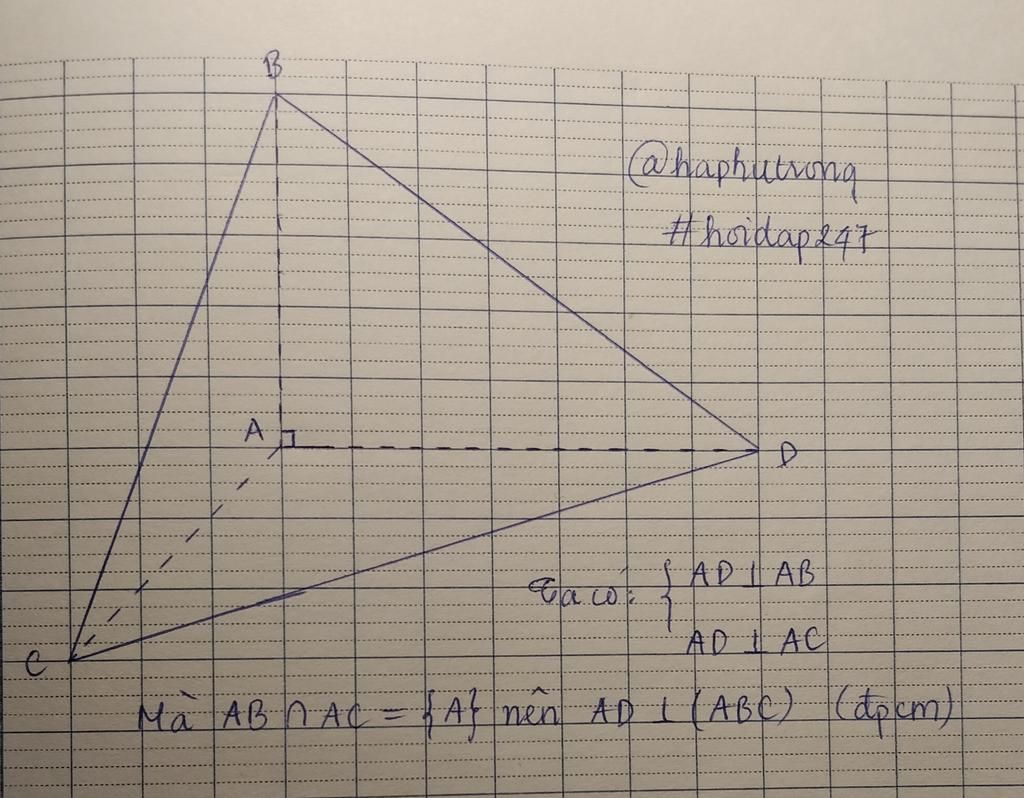 B
@haphutrong
#hoidap247
A
D
Ta có: { AD ⊥ AB
AD ⊥ AC
C
Mà AB ∩ AC = {A} nên AD ⊥ (ABC) (đpcm)